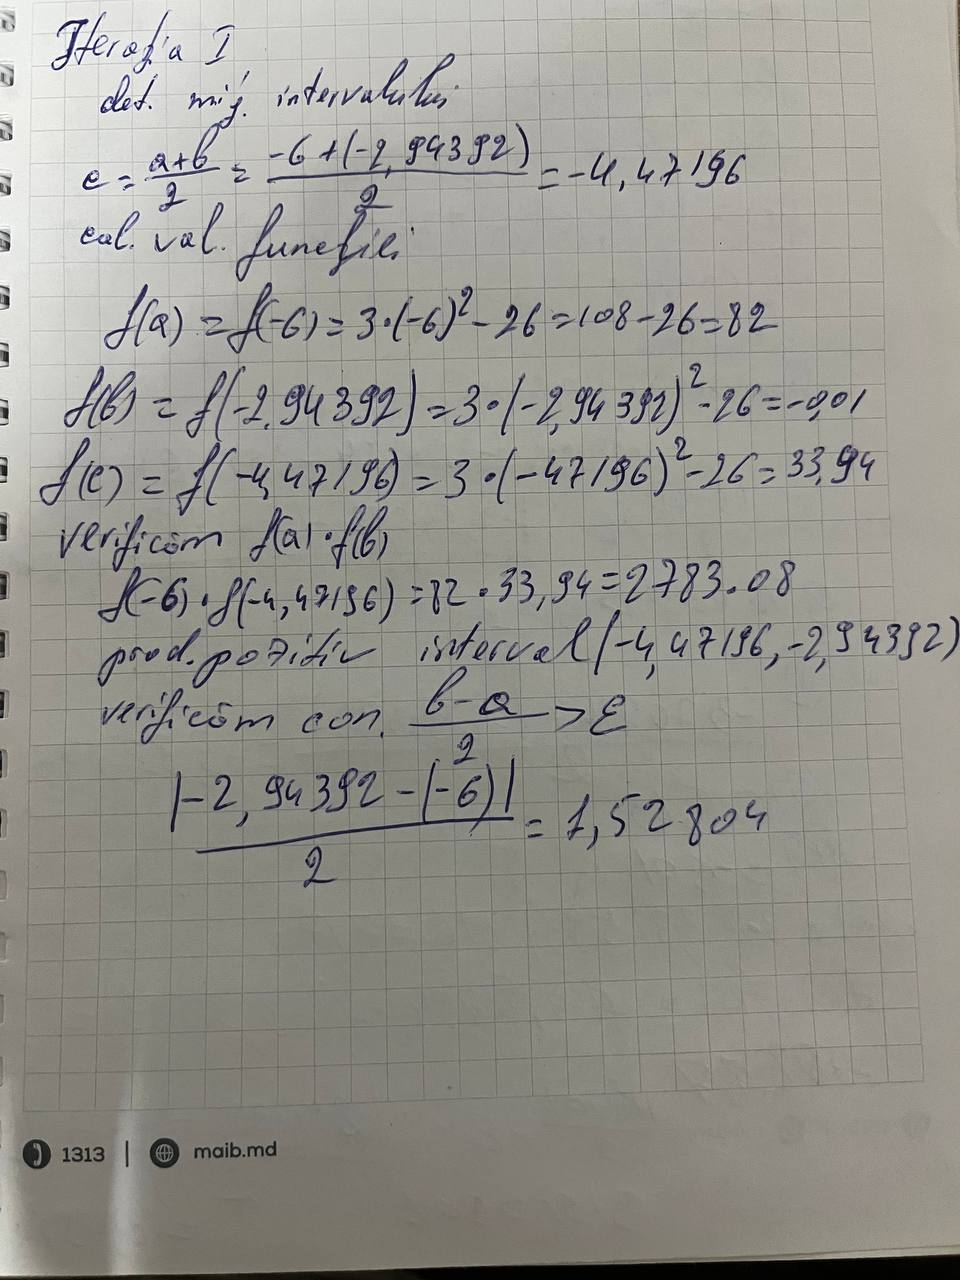 Iterația I
det. mij. intervalului
c = a+b/2 = -6+(-2,94392)/2 = -4,47196
cal. val. funcției
f(a) = f(-6) = 3·(-6)² - 26 = 108 - 26 = 82
f(b) = f(-2,94392) = 3·(-2,94392)² - 26 = -0,01
f(c) = f(-4,47196) = 3·(-47196)² - 26 = 33,94
verificăm f(a)·f(b)
f(-6)·f(-4,47196) = 82·33,94 = 2783.08
prod. pozitiv interval (-4,47196, -2,94392)
verificăm con. b-a/2 > ε
|-2,94392 - (-6)|/2 = 1,52804
1313 | maib.md